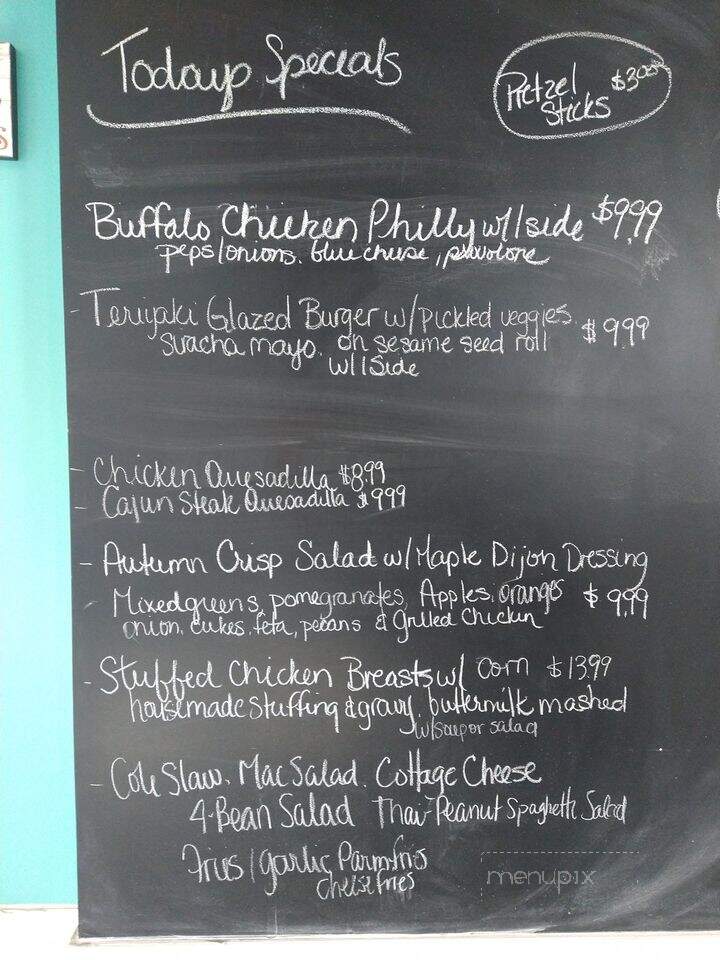 Today Specials
Pretzel $3.00
Sticks
Buffalo Chicken Philly w/1side $9.99
peps/onions. blue cheese, provolone
- Teriyaki Glazed Burger w/pickled veggies. $9.99
siracha mayo. on sesame seed roll
w/1side
- Chicken Quesadilla $8.99
- Cajun Steak Quesadilla $9.99
- Autumn Crisp Salad w/Maple Dijon Dressing
- Mixed greens, pomegranates, Apples, oranges $9.99
onion, cukes, feta, pecans & Grilled Chicken
- Stuffed Chicken Breasts w/ corn $13.99
housemade stuffing & gravy, buttermilk mashed
w/soup or salad
- Cole Slaw. Mac Salad. Cottage Cheese
4-Bean Salad Thai-Peanut Spaghetti Salad
Fries/garlic Parm fries
cheese fries
menupix